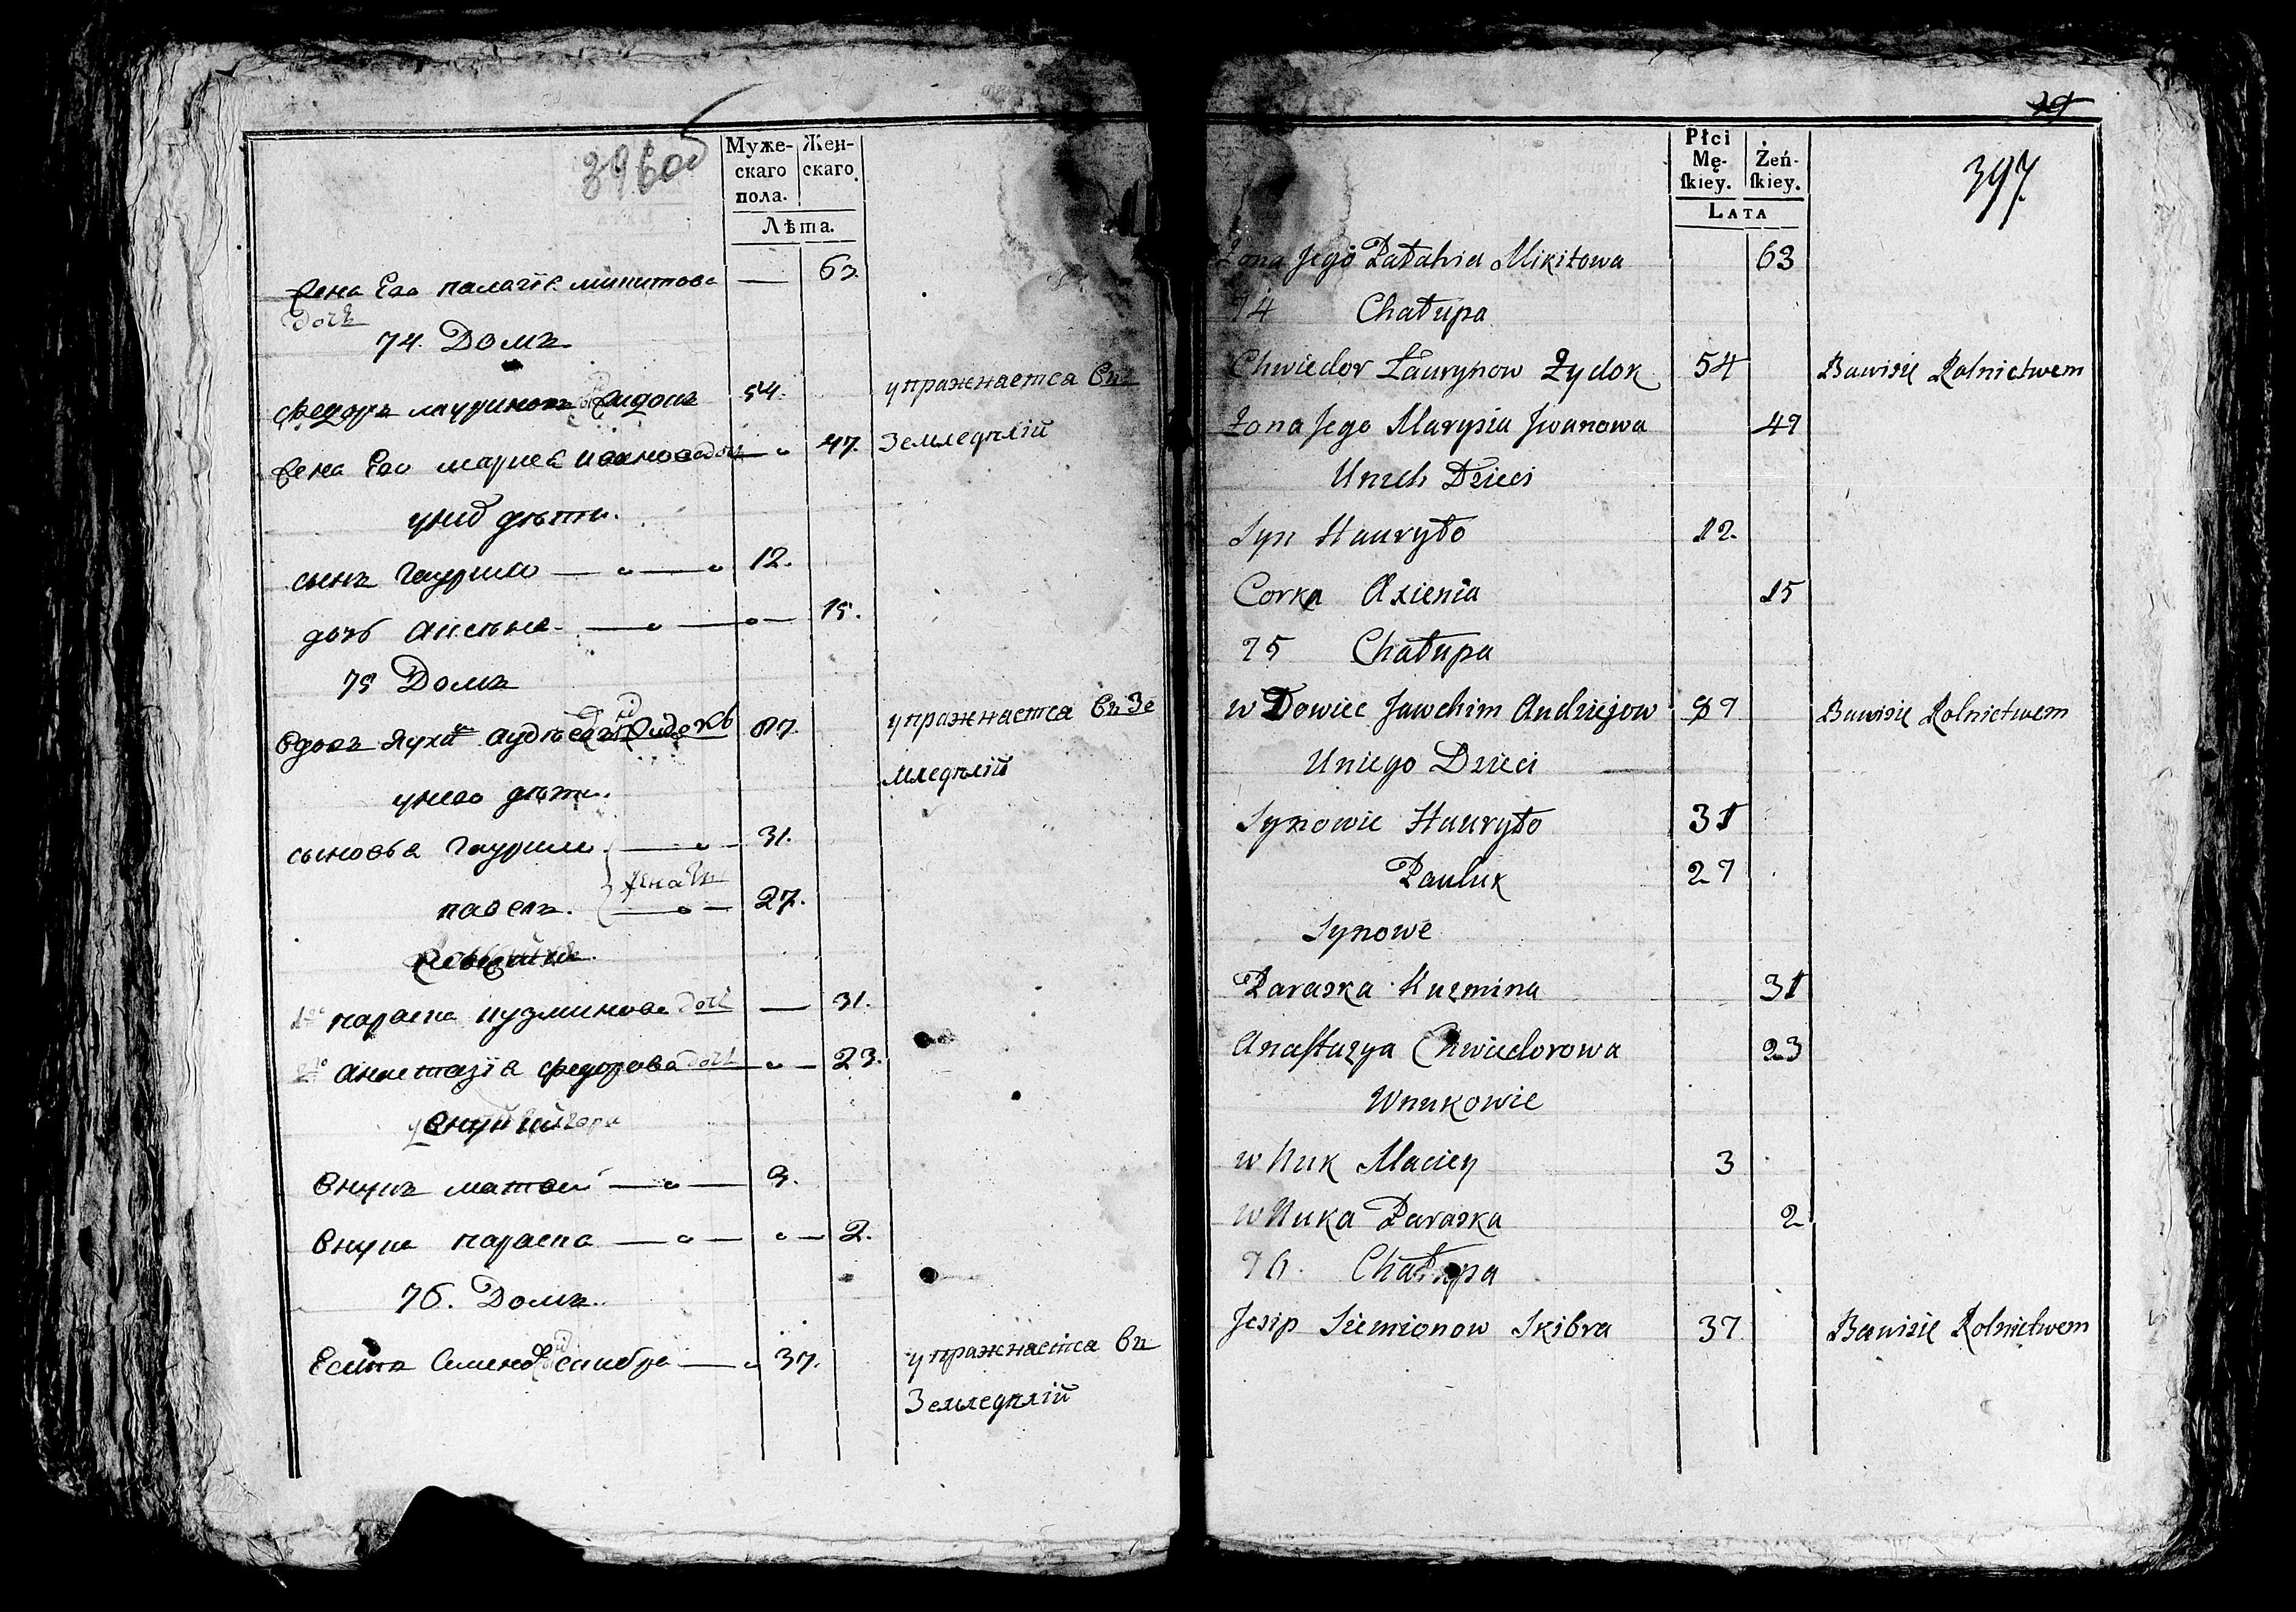 396 об
Муже-
скаго
пола.
Жен-
скаго.
Лѣта.
Жена Его палагіѣ микитова — 63.
дочь
74. Домъ.
Федоръ лауриновъ Жидокъ 54. упражняется въ
Жена Его марися иванова дочь — 47. Земледѣлій
у нихъ дѣти.
сынъ Гаурило — 12.
дочь Аксеня — 15.
75 Домъ
Вдовъ Яухим Андрѣевъ Жидокъ 87. упражняется въ Зе
у него дѣти. мледѣлій
сыновья Гаурило — 31.
женаты
павелъ. — 27.
параска кузмина дочь — 31.
Анастазія Федорова дочь — 23.
Внукъ матвей — 3.
Внука параска — 2.
76. Домъ.
Есипъ Семеновъ скибра — 37. упражняется въ
Земледѣлій
29
397
Płci
Mę-
ſkiey.
Żeń-
ſkiey.
LATA
Żona Jego Pałahia Mikitowa 63
74 Chałupa
Chwiedor Łaurynow Żydok 54 Bawisię Rolnictwem
Żona Jego Marysia Jwanowa 47
Unich Dzieci
Syn Hauryło 12.
Corka Axienia 15
75 Chałupa
wDowiec Jawchim Andziejow 87 Bawisię Rolnictwem
Uniego Dzieci
Synowie Hauryło 31
Pauluk 27
Synowe
Paraska Kuzmina 31
Anaſtazya Chwiedorowa 23
Wnukowie
wNuk Maciey 3
wNuka Paraska 2
76. Chałupa
Jesip Siemionow Skibra 37 Bawisię Rolnictwem